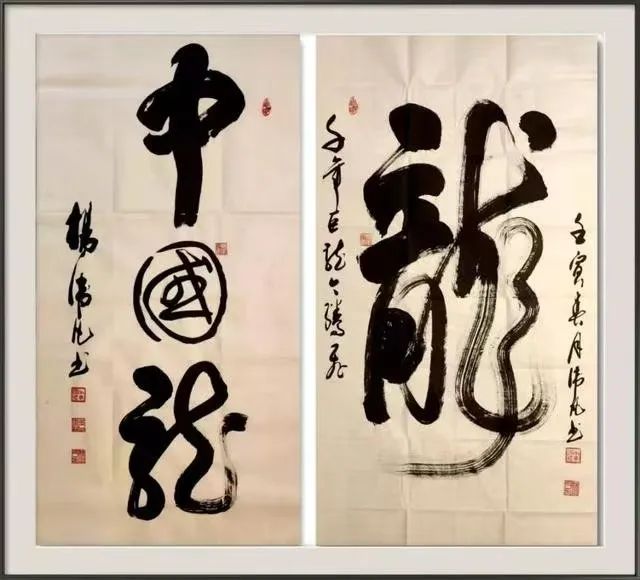 中國龍
楊凡书
龍
千年巨龍今騰飛
壬寅春月凡书